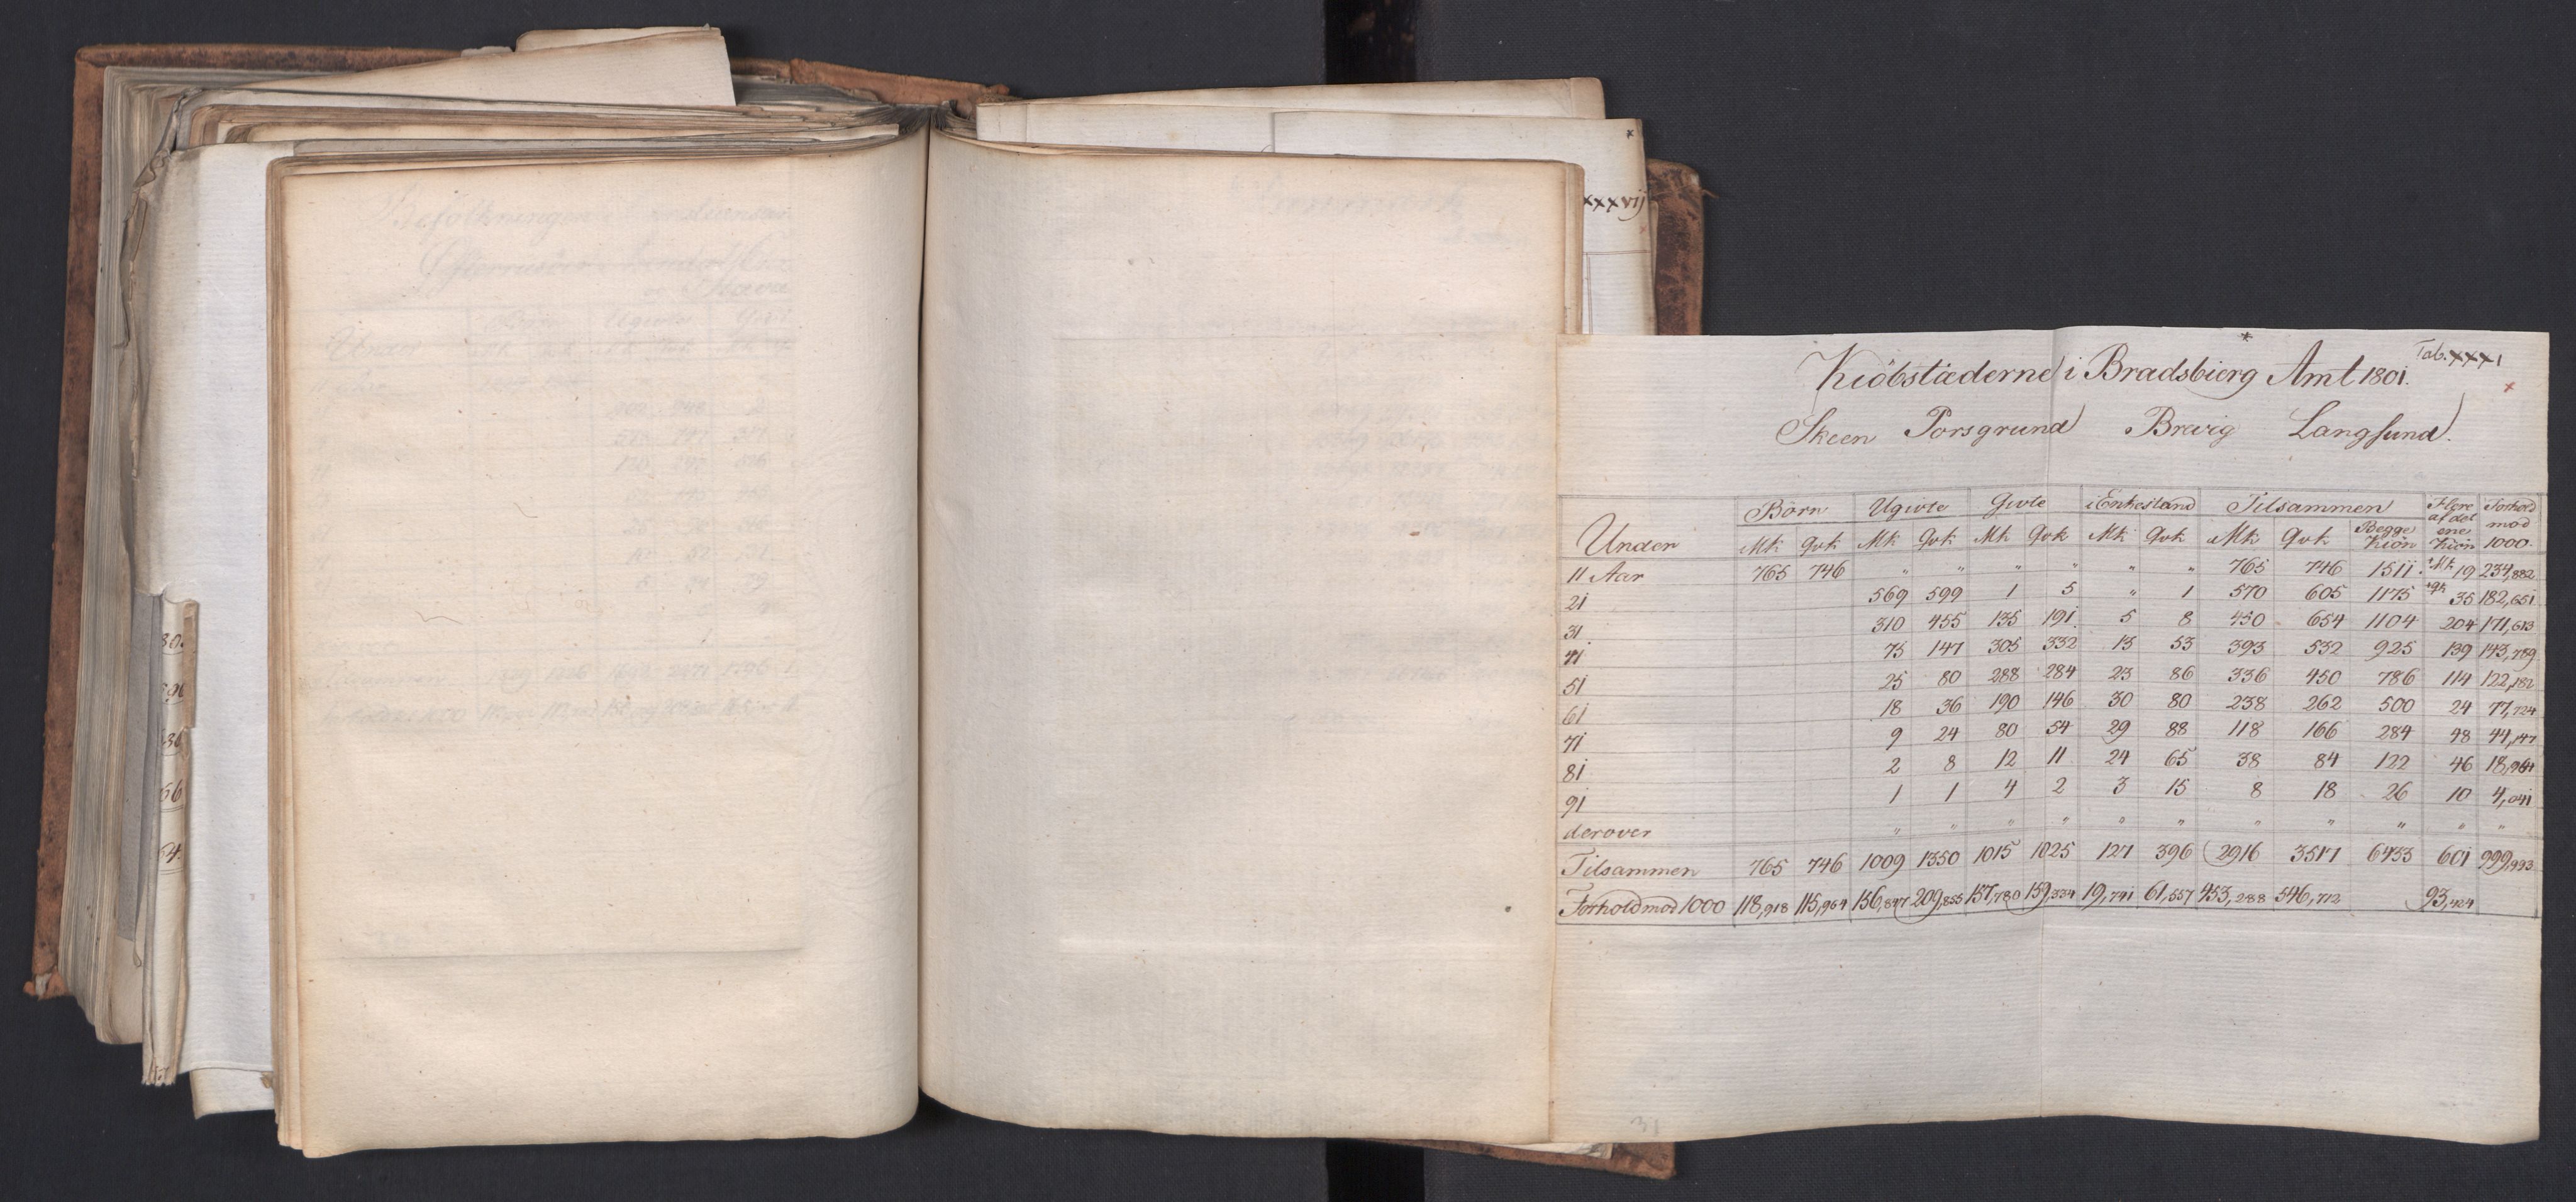 xxxvij
Tab. xxxi
Kiöbstæderne i Bradsbierg Amt 1801.
Skeen Porsgrund Brevig Langsund.
Under Börn Ugivte Givte i Enkestand Tilsammen Flere af det ene Kiön Forhold mod 1000.
Mk Qvk Mk Qvk Mk Qvk Mk Qvk Mk Qvk Begge Kiön
11 Aar 765 746 " " " " " " 765 746 1511 Mk 19 234,882
21 569 599 1 5 " 1 570 605 1175 qk 35 182,651
31 310 455 135 191 5 8 450 654 1104 204 171,613
41 75 147 305 332 13 53 393 532 925 139 143,789
51 25 80 288 284 23 86 336 450 786 114 122,182
61 18 36 190 146 30 80 238 262 500 24 77,724
71 9 24 80 54 29 88 118 166 284 48 44,147
81 2 8 12 11 24 65 38 84 122 46 18,964
91 1 1 4 2 3 15 8 18 26 10 4,041
derover " " " " " " " " " " "
Tilsammen 765 746 1009 1350 1015 1025 127 396 2916 3517 6433 601 999,993
Forhold mod 1000 118,918 115,964 156,847 209,855 157,780 159,334 19,741 61,557 453,288 546,712 93,424